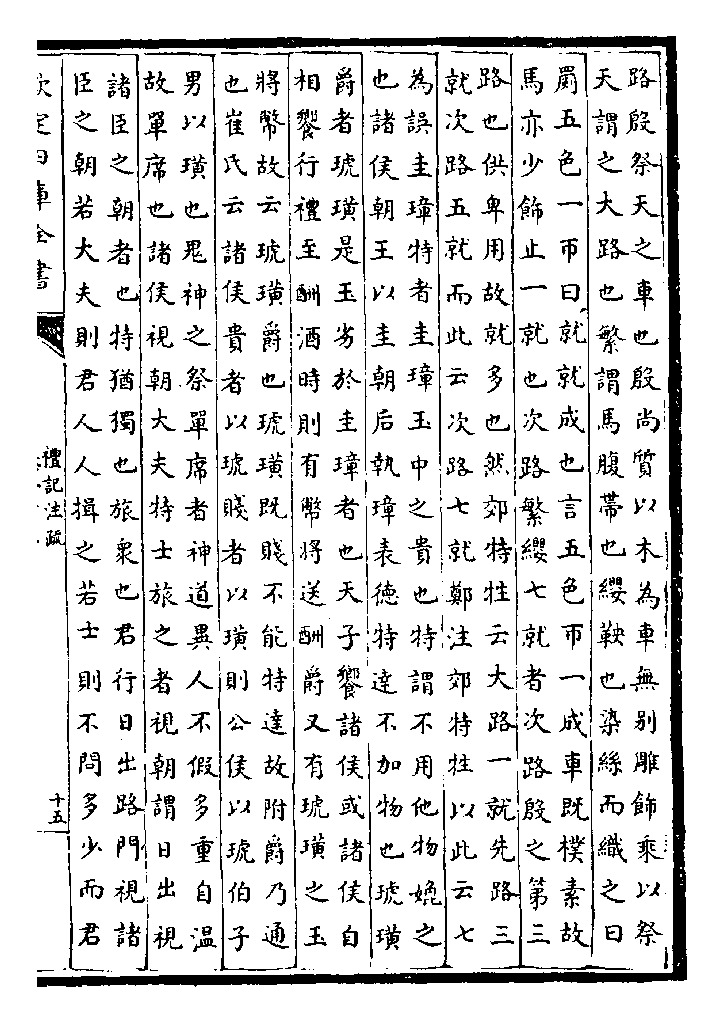 路殷祭天之車也殷尚質以木為車無別雕飾乘以祭
天謂之大路也繁謂馬腹帶也纓鞅也染絲而織之曰
罽五色一帀曰就就成也言五色帀一成車既樸素故
馬亦少飾止一就也次路繁纓七就者次路殷之第三
路也供卑用故就多也然郊特牲云大路一就先路三
就次路五就而此云次路七就鄭注郊特牲以此云七
為誤圭璋特者圭璋玉中之貴也特謂不用他物媲之
也諸侯朝王以圭朝后執璋表德特達不加物也琥璜
爵者琥璜是玉劣於圭璋者也天子饗諸侯或諸侯自
相饗行禮至酬酒時則有幣將送酬爵又有琥璜之玉
將幣故云琥璜爵也琥璜既賤不能特達故附爵乃通
也崔氏云諸侯貴者以琥賤者以璜則公侯以琥伯子
男以璜也鬼神之祭單席者神道異人不假多重自溫
故單席也諸侯視朝大夫特士旅之者視朝謂日出視
諸臣之朝者也特猶獨也旅衆也君行日出路門視諸
臣之朝若大夫則君人人揖之若士則不問多少而君
欽定四庫全書
禮記注疏
十五